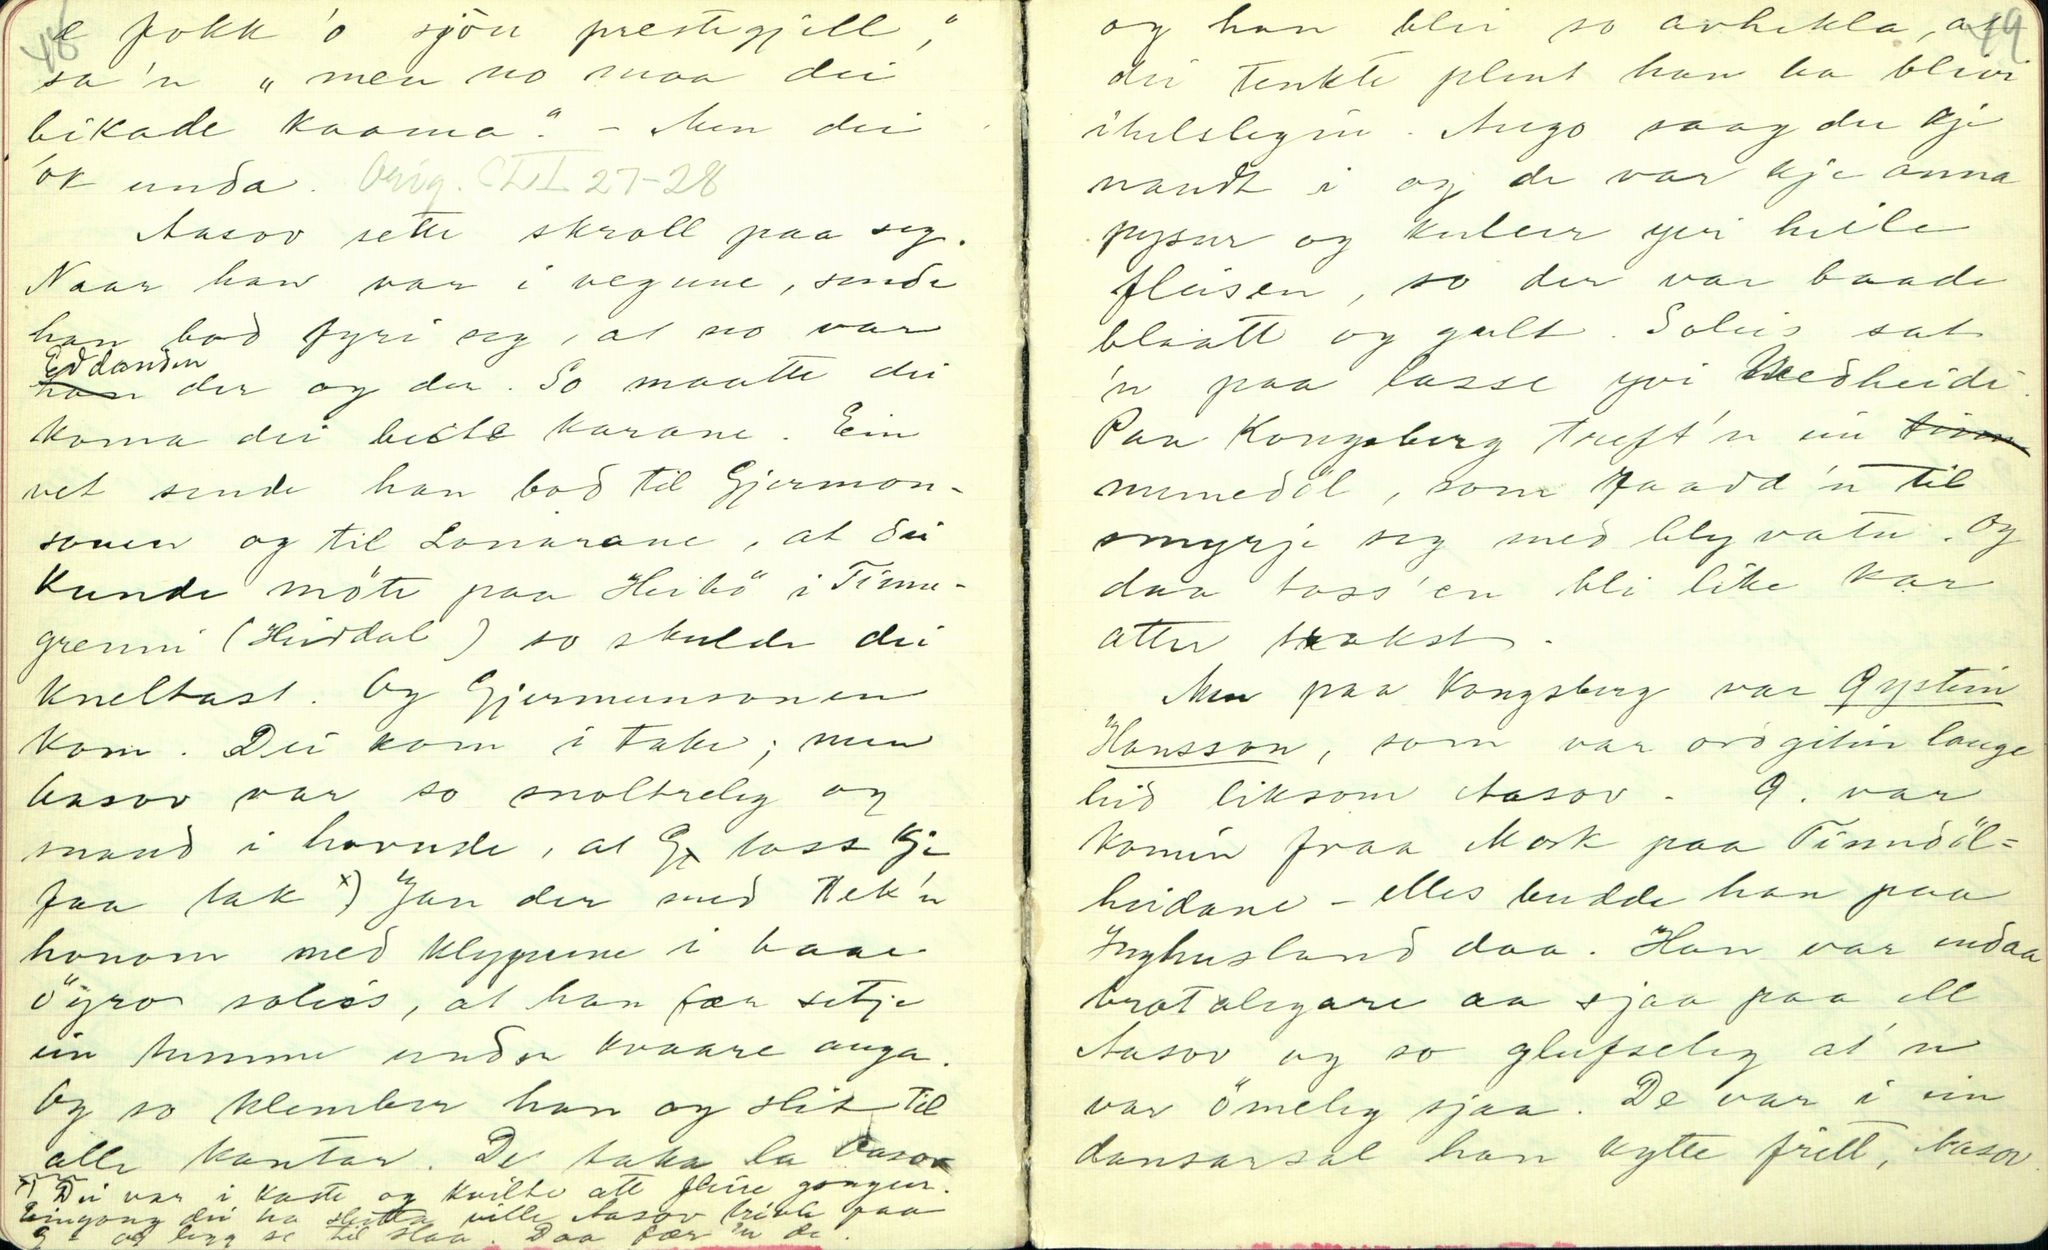 48
e fokk 'o sjöu prestegjell,"
sa'n „men no maa dei
bikade kaama." – Men dei
ók unda. Orig. CLI 27-28
Aasov sette skroll paa seg.
Naar han var i vegune, sende
han bod fyri seg, at no var
Eddanden
han der og der. So maatte dei
koma dei beste karane. Ein
vet sende han bod til Gjermon-
sonen og til Lonarane, at dei
kunde möte paa Heibö i Tinne-
grenni (Heirdal) so skulde dei
kneltast. Og Gjermunsonen
kom. Dei kom i take; men
Aasov var so snoltreleg og
snaud i hovude, at Gj. toss kje
faa tak x) Jan der med tek'n
honom med klypune i baae
öyro soleis, at han fær setje
ein tumme under kvaare auga.
Og so klember han og slit til
alle kantar. De taka la Aasov
x) Dei var i kaste og kvilte att fleire gongur.
Eingong dei ha slitta ville Aasov trive paa
G. og legg se til slaa. Daa fær'n de.
49
og han blei so avhekla, at
dei tenkte plent han ha blivi
ihelslegin. Augo saag du kje
naudt i og de var kje anna
pysur og kuleur yvi heile
fleisen, so der var baade
blaatt og gult. Soleis sat
'n paa lasse yvi Medheidi.
Paa Kongsberg treft'n ein
numedöl, som raadd'n til
smyrje seg med blyvatn. Og
daa toss'en bli like kar
atter trakst.
Men paa Kongsberg var Øystein
Hansson, som var ordgitin lange
leid liksom Aasov. Ø. var
komin fraa Mork paa Tinndöl=
heidane – elles budde han paa
Jnghusland daa. Han var endaa
brotalegare aa sjaa paa ell
Aasov og so glufseleg at'n
var ömeleg sjaa. De var i ein
dansarsal han kytte fritt, Aasov.